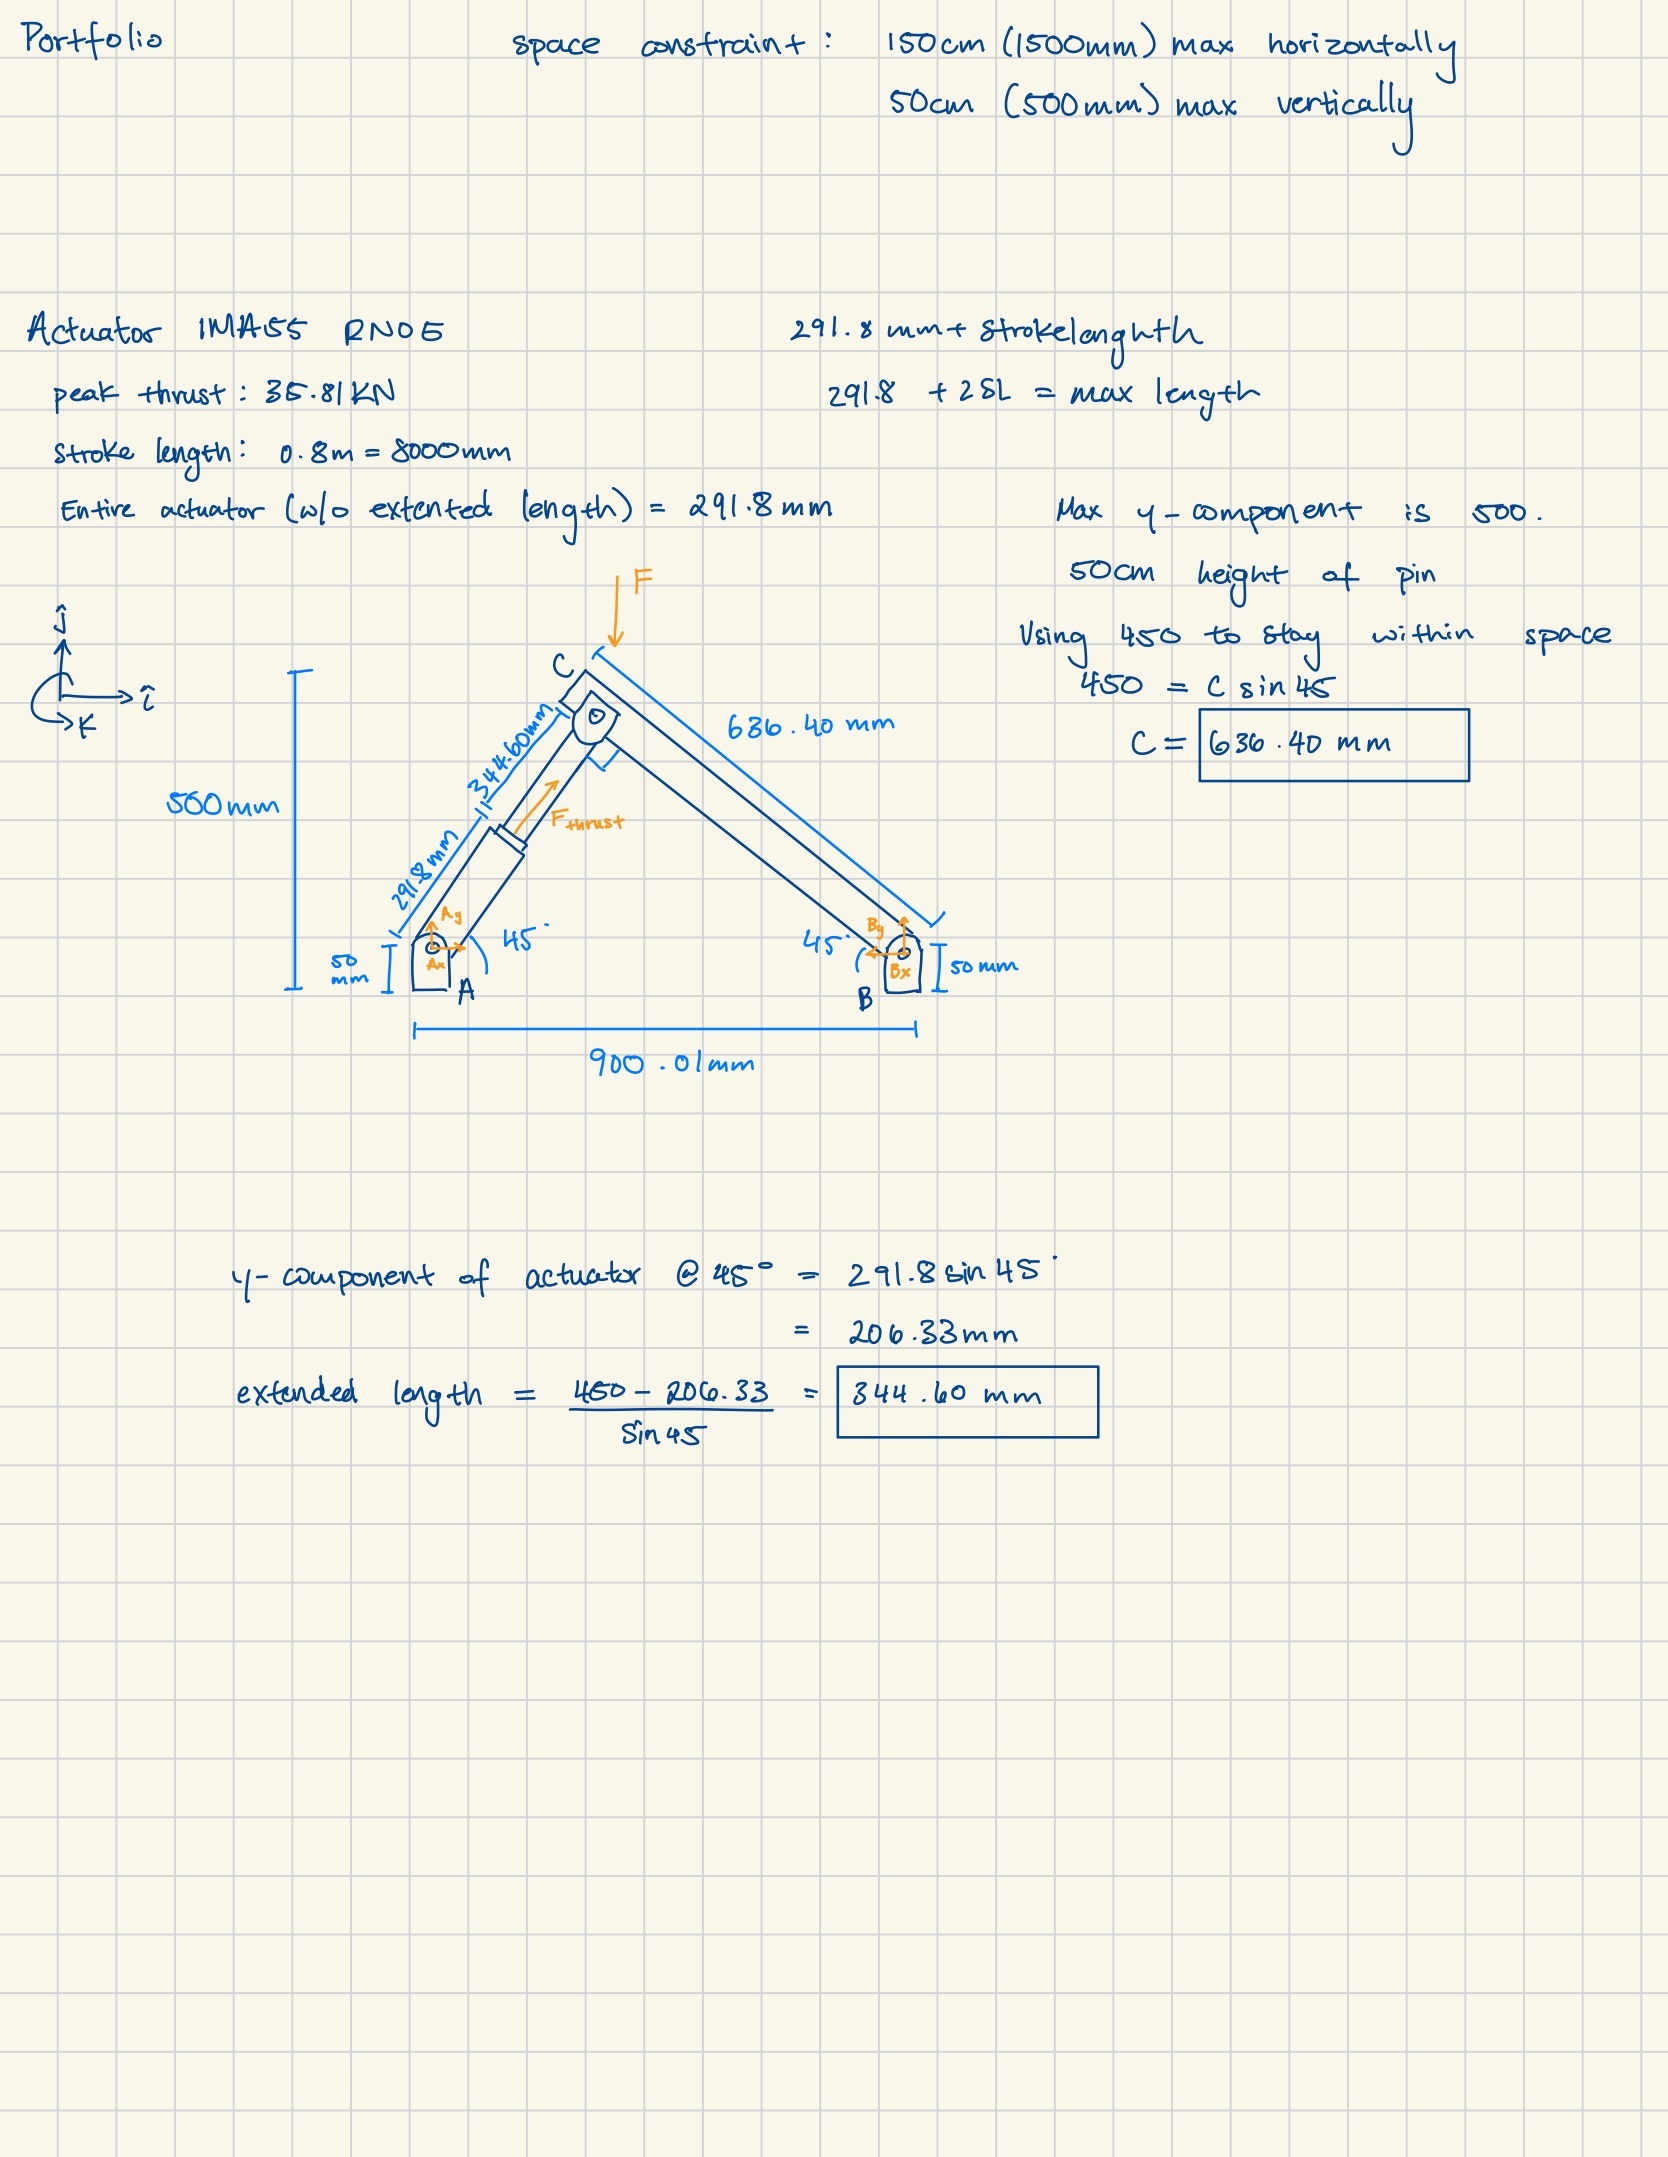 Portfolio
space constraint : 150cm (1500mm) max horizontally
50cm (500mm) max vertically
Actuator IMA55 RN05
peak thrust : 35.81KN
stroke length : 0.8m = 8000mm
Entire actuator (w/o extented length) = 291.8 mm
291.8 mm + strokelenghth
291.8 + 2SL = max length
Max y-component is 500.
50cm height of pin
Using 450 to stay within space
450 = C sin 45
C = 636.40 mm
F
ĵ
î
K
C
636.40 mm
344.60mm
500mm
Fthrust
291.8mm
Ay
Ax
45°
50
mm
A
45°
By
Bx
50mm
B
900.01mm
y-component of actuator @ 45° = 291.8 sin 45°
= 206.33mm
extended length = 450 - 206.33 = 344.60 mm
sin 45